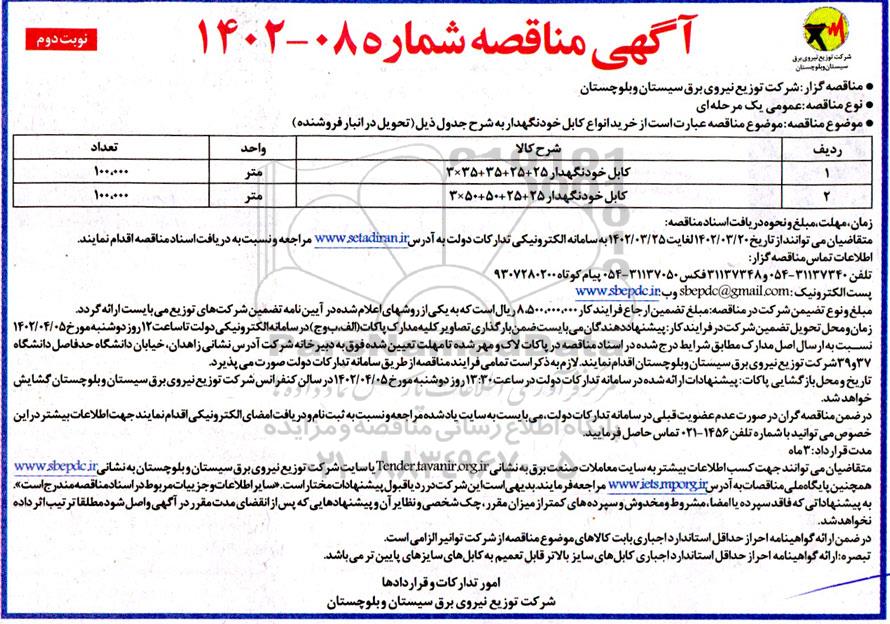 آگهی مناقصه شماره ۰۸-۱۴۰۲
نوبت دوم
شرکت توزیع نیروی برق
سیستان وبلوچستان
● مناقصه گزار: شرکت توزیع نیروی برق سیستان وبلوچستان
● نوع مناقصه: عمومی یک مرحله ای
● موضوع مناقصه: موضوع مناقصه عبارت است از خرید انواع کابل خودنگهدار به شرح جدول ذیل (تحویل در انبار فروشنده)
ردیف شرح کالا واحد تعداد
۱ کابل خودنگهدار ۲۵+۲۵+۳۵+۳۵×۳ متر ۱۰۰،۰۰۰
۲ کابل خودنگهدار ۲۵+۲۵+۵۰+۵۰×۳ متر ۱۰۰،۰۰۰
زمان، مهلت، مبلغ و نحوه دریافت اسناد مناقصه:
متقاضیان می توانند از تاریخ ۱۴۰۲/۰۳/۲۰ لغایت ۱۴۰۲/۰۳/۲۵ به سامانه الکترونیکی تدارکات دولت به آدرس www.setadiran.ir مراجعه و نسبت به دریافت اسناد مناقصه اقدام نمایند.
اطلاعات تماس مناقصه گزار:
تلفن ۳۱۱۳۷۳۴۰-۰۵۴ و ۳۱۱۳۷۳۴۸ فکس ۳۱۱۳۷۰۵۰-۰۵۴ پیام کوتاه ۹۳۰۷۲۸۰۲۰۰
پست الکترونیک: sbepdc@gmail.com وب: www.sbepdc.ir
مبلغ و نوع تضمین شرکت در مناقصه: مبلغ تضمین ارجاع فرایند کار ۸،۵۰۰،۰۰۰،۰۰۰ ریال است که به یکی از روشهای اعلام شده در آیین نامه تضمین شرکت های توزیع می بایست ارائه گردد.
زمان و محل تحویل تضمین شرکت در فرایند کار: پیشنهاد دهندگان می بایست ضمن بارگذاری تصاویر کلیه مدارک پاکات (الف، ب و ج) در سامانه الکترونیکی دولت تا ساعت ۱۲ روز دوشنبه مورخ ۱۴۰۲/۰۴/۰۵
نسبت به ارسال اصل مدارک مطابق شرایط درج شده در اسناد مناقصه در پاکات لاک و مهر شده تا مهلت تعیین شده فوق به دبیرخانه شرکت آدرس نشانی زاهدان، خیابان دانشگاه حدفاصل دانشگاه
۳۷ و ۳۹ شرکت توزیع نیروی برق سیستان وبلوچستان اقدام نمایند. لازم به ذکر است تمامی فرایند مناقصه از طریق سامانه تدارکات دولت صورت می پذیرد.
تاریخ و محل بازگشایی پاکات: پیشنهادات ارائه شده در سامانه تدارکات دولت در ساعت ۱۳:۳۰ روز دوشنبه مورخ ۱۴۰۲/۰۴/۰۵ در سالن کنفرانس شرکت توزیع نیروی برق سیستان وبلوچستان گشایش
خواهد شد.
در ضمن مناقصه گران در صورت عدم عضویت قبلی در سامانه تدارکات دولت، می بایست به سایت یاد شده مراجعه و نسبت به ثبت نام و دریافت امضای الکترونیکی اقدام نمایند جهت اطلاعات بیشتر در این
خصوص می توانید با شماره تلفن ۱۴۵۶-۰۲۱ تماس حاصل فرمایید.
مدت قرارداد: ۳ ماه
متقاضیان می توانند جهت کسب اطلاعات بیشتر به سایت معاملات صنعت برق به نشانی Tender.tavanir.org.ir یا سایت شرکت توزیع نیروی برق سیستان وبلوچستان به نشانی www.sbepdc.ir
همچنین پایگاه ملی مناقصات به آدرس www.iets.mporg.ir مراجعه فرمایند. بدیهی است این شرکت در رد یا قبول پیشنهادات مختار است. «سایر اطلاعات و جزییات مربوط در اسناد مناقصه مندرج است».
به پیشنهاداتی که فاقد سپرده یا امضا، مشروط و مخدوش و سپرده های کمتر از میزان مقرر، چک شخصی و نظایر آن و پیشنهادهایی که پس از انقضای مدت مقرر در آگهی واصل شود مطلقا ترتیب اثر داده
نخواهد شد.
در ضمن ارائه گواهینامه احراز حداقل استاندارد اجباری بابت کالاهای موضوع مناقصه از شرکت توانیر الزامی است.
تبصره: ارائه گواهینامه احراز حداقل استاندارد اجباری کابل های سایز بالاتر قابل تعمیم به کابل های سایزهای پایین تر می باشد.
امور تدارکات و قراردادها
شرکت توزیع نیروی برق سیستان وبلوچستان